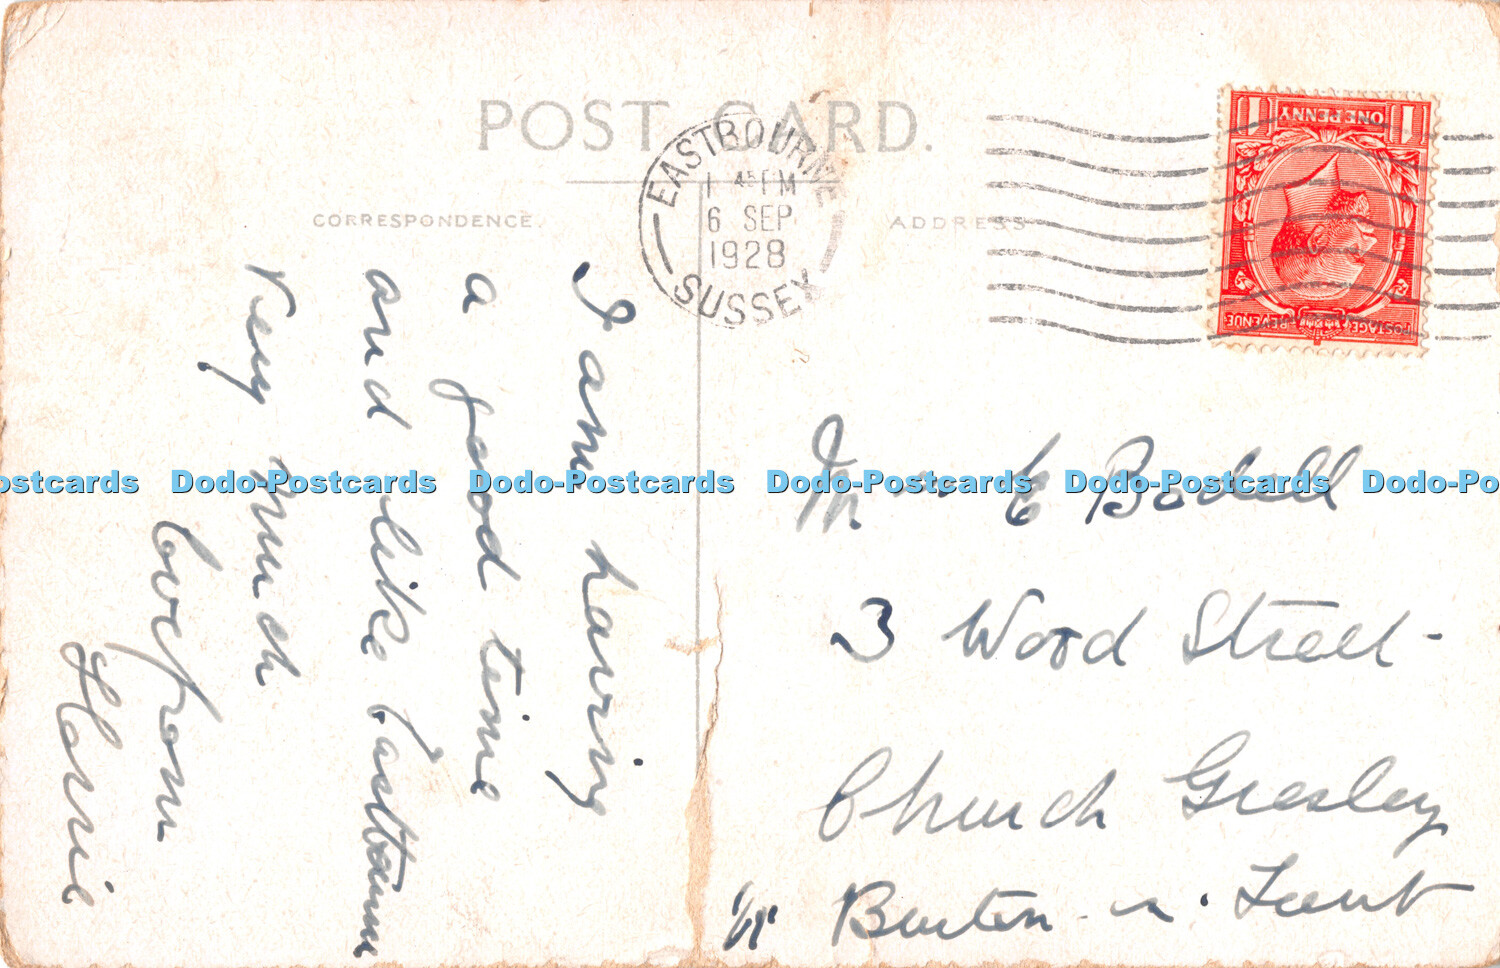 POST CARD.
CORRESPONDENCE.
ADDRESS
EASTBOURNE
1 45 PM
6 SEP
1928
SUSSEX
ONE PENNY
POSTAGE REVENUE
I am having
a good time
and like Eastbourne
very much
love from
Florrie
Mrs E Bodell
3 Wood Street
Church Gresley
Burton-n-Trent
Dodo-Postcards Dodo-Postcards Dodo-Postcards Dodo-Postcards